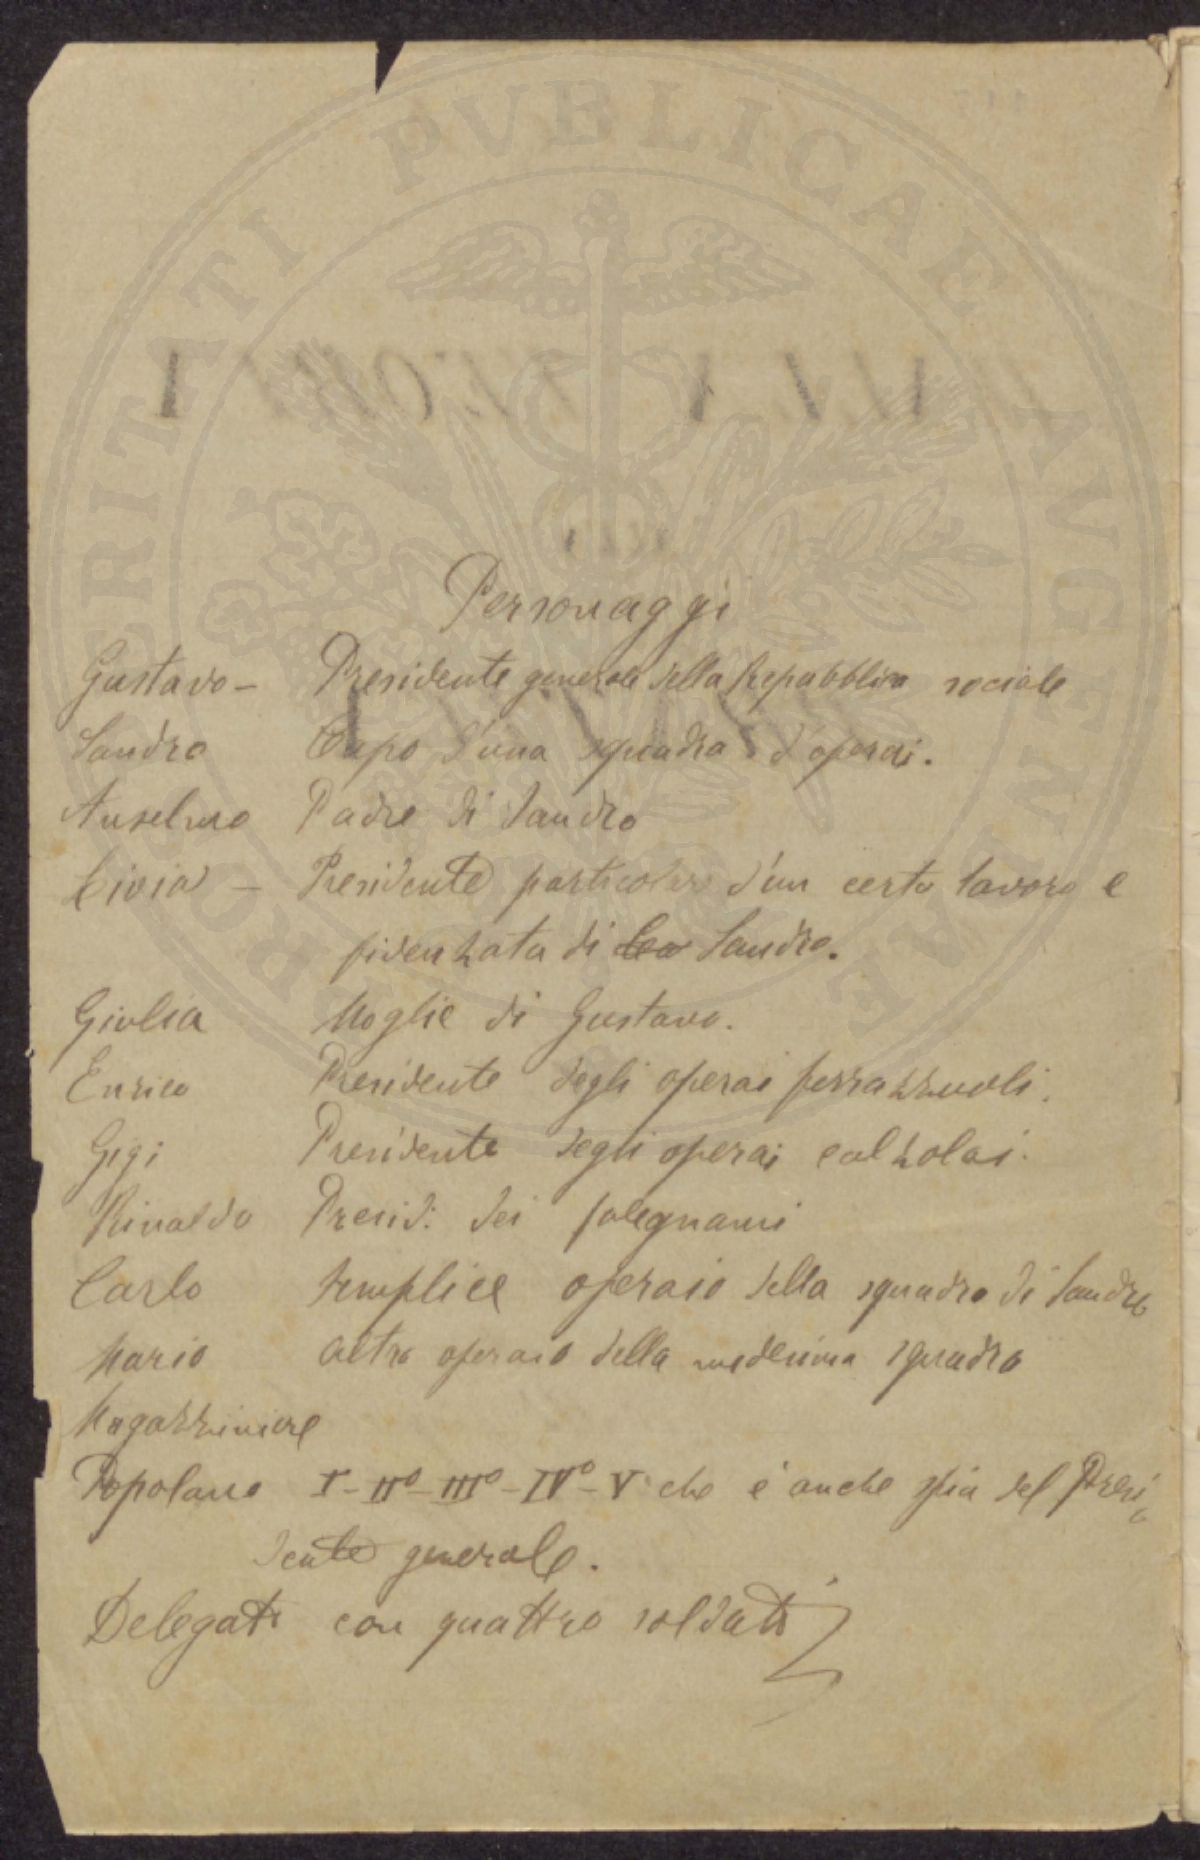 PROSPERITATI PVBLICAE AVGENDAE
Personaggi
Gustavo - Presidente generale della Repubblica sociale
Sandro Capo d'una squadra d'operai.
Anselmo Padre di Sandro
Livia - Presidente particolare d'un certo lavoro e
fidenzata di Ca Sandro.
Giulia Moglie di Gustavo.
Enrico Presidente degli operai ferrazzuoli.
Gigi Presidente degli operai calzolai.
Rinaldo Presid: dei falegnami
Carlo semplice operaio della squadra di Sandro
Mario altro operaio della medesima squadra
Magazziniere
Popolano I - IIº - IIIº - IVº - V che è anche spia del Presi
dente generale.
Delegati con quattro soldati